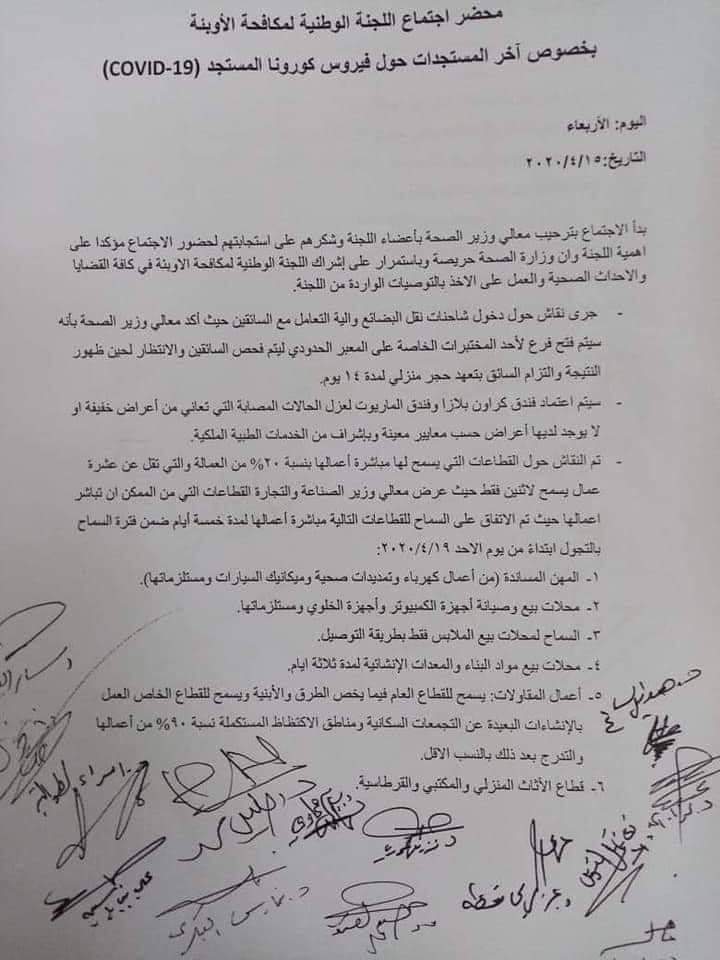 محضر اجتماع اللجنة الوطنية لمكافحة الأوبئة
بخصوص آخر المستجدات حول فيروس كورونا المستجد (COVID-19)
اليوم: الأربعاء
التاريخ: ٢٠٢٠/٤/١٥
بدأ الاجتماع بترحيب معالي وزير الصحة بأعضاء اللجنة وشكرهم على استجابتهم لحضور الاجتماع مؤكدا على
اهمية اللجنة وان وزارة الصحة حريصة وباستمرار على إشراك اللجنة الوطنية لمكافحة الاوبئة في كافة القضايا
والاحداث الصحية والعمل على الاخذ بالتوصيات الواردة من اللجنة.
- جرى نقاش حول دخول شاحنات نقل البضائع والية التعامل مع السائقين حيث أكد معالي وزير الصحة بأنه
سيتم فتح فرع لأحد المختبرات الخاصة على المعبر الحدودي ليتم فحص السائقين والانتظار لحين ظهور
النتيجة والتزام السائق بتعهد حجر منزلي لمدة ١٤ يوم.
- سيتم اعتماد فندق كراون بلازا وفندق الماريوت لعزل الحالات المصابة التي تعاني من أعراض خفيفة او
لا يوجد لديها أعراض حسب معايير معينة وبإشراف من الخدمات الطبية الملكية.
- تم النقاش حول القطاعات التي يسمح لها مباشرة أعمالها بنسبة ٢٠% من العمالة والتي تقل عن عشرة
عمال يسمح لاثنين فقط حيث عرض معالي وزير الصناعة والتجارة القطاعات التي من الممكن ان تباشر
اعمالها حيث تم الاتفاق على السماح للقطاعات التالية مباشرة أعمالها لمدة خمسة أيام ضمن فترة السماح
بالتجول ابتداءً من يوم الاحد ٢٠٢٠/٤/١٩:
١- المهن المساندة (من أعمال كهرباء وتمديدات صحية وميكانيك السيارات ومستلزماتها).
٢- محلات بيع وصيانة أجهزة الكمبيوتر وأجهزة الخلوي ومستلزماتها.
٣- السماح لمحلات بيع الملابس فقط بطريقة التوصيل.
٤- محلات بيع مواد البناء والمعدات الإنشائية لمدة ثلاثة ايام.
٥- أعمال المقاولات: يسمح للقطاع العام فيما يخص الطرق والأبنية ويسمح للقطاع الخاص العمل
بالإنشاءات البعيدة عن التجمعات السكانية ومناطق الاكتظاظ المستكملة نسبة ٩٠% من أعمالها
والتدرج بعد ذلك بالنسب الاقل.
٦- قطاع الأثاث المنزلي والمكتبي والقرطاسية.